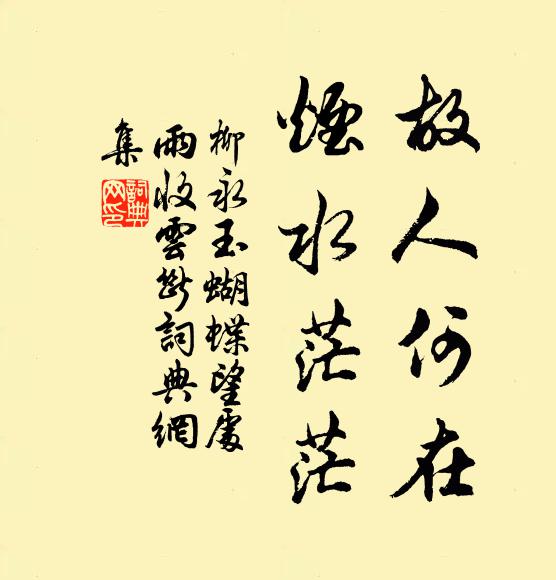 故人何在
煙水茫茫
柳永玉蝴蝶望處
雨收雲斷詞典網
集
詞典网印